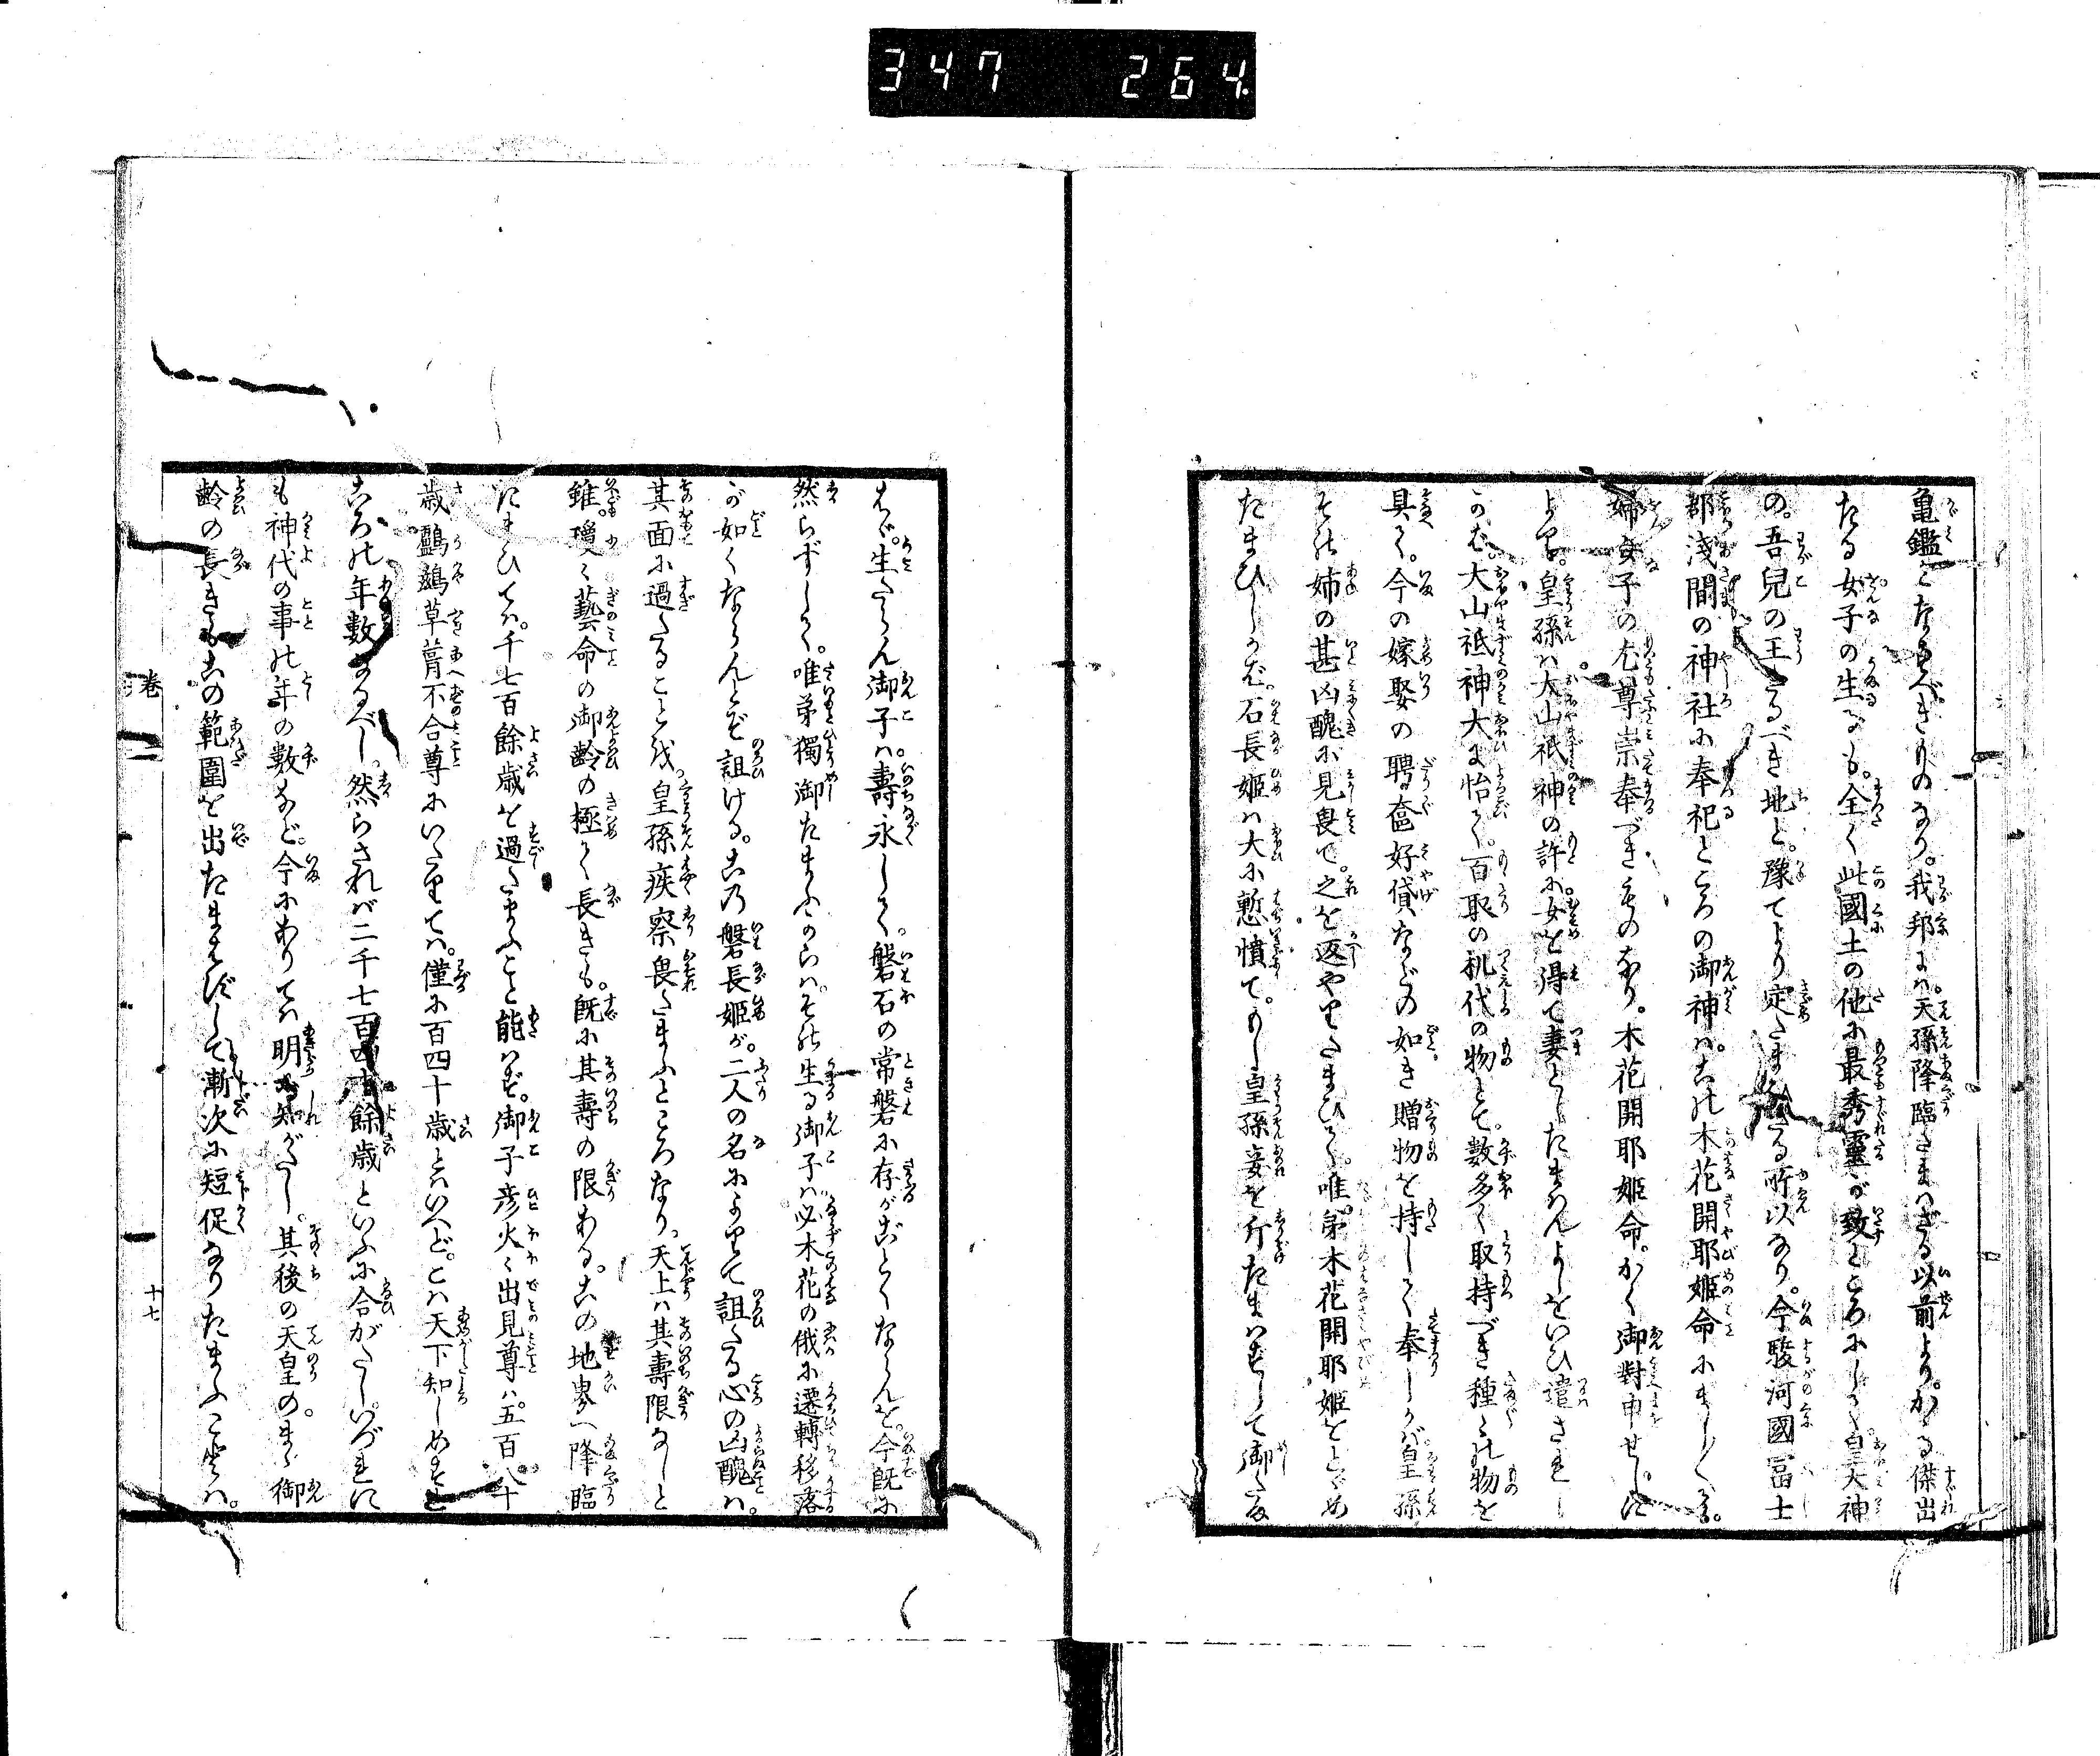 347 264
亀鑑となるべきものなり。我邦にハ。天孫降臨さまハざる以前より。かゝる傑出
たる女子の生るも。全く此國土の他に最秀靈が致ところにして。皇大神
の。吾兒の王たるべき地と。豫てより定たまへる所以なり。今駿河國富士
郡淺間の神社に奉祀ところの御神ハ。この木花開耶姫命にましく〳〵ける。
婦女子の尤尊崇奉べきものなり。木花開耶姫命。かく御對申せしに
より。皇孫ハ大山祇神の許に。女を得て妻としたまはんよしをいひ遣されし
かば。大山祇神大に怡て。百取の机代の物とて。數多く取持べき種々の物を
具て。今の嫁娶の聘奩好貸などの如き贈物を持して奉しかバ。皇孫
その姉の甚凶醜に見畏て。之を返やりたまひて。唯弟木花開耶姫をとゞめ
たまひしかば。石長姫ハ大に慙憤て。もし皇孫妾を斥たまハずして御さば
るバ。生たらん御子ハ。壽永しく。磐石の常磐に存がごとくならんを。今既に
然らずして。唯弟獨御たまふからハ。その生る御子ハ。必木花の俄に遷轉移落
が如くならんとぞ詛ける。この磐長姫が。二人の名によりて詛たる心の凶醜ハ。
其面に過たることを。皇孫疾察畏たまふところなり。天上ハ其壽限なしと
雖。瓊々藝命の御齢の極て長きも。既に其壽の限ある。この地界へ降臨
たまひてハ。千七百餘歳を過たまふこと能ハず。御子彦火々出見尊ハ。五百八十
歳。鸕鷀草葺不合尊にいたりてハ。僅に百四十歳といへど。こハ天下知しめせし
ころの年數なるべし。然らされバ二千七百四十餘歳といふに合がたし。いづれに
も神代の事の年の數など。今にありてハ明に知がたし。其後の天皇の。まゝ御
齡の長きもこの範圍を出たまはずして漸次に短促なりたまふことハ。
卷
十七